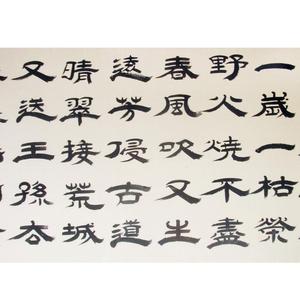 一歲一枯榮
野火燒不盡
春風吹又生
遠芳侵古道
晴翠接荒城
又送王孫去